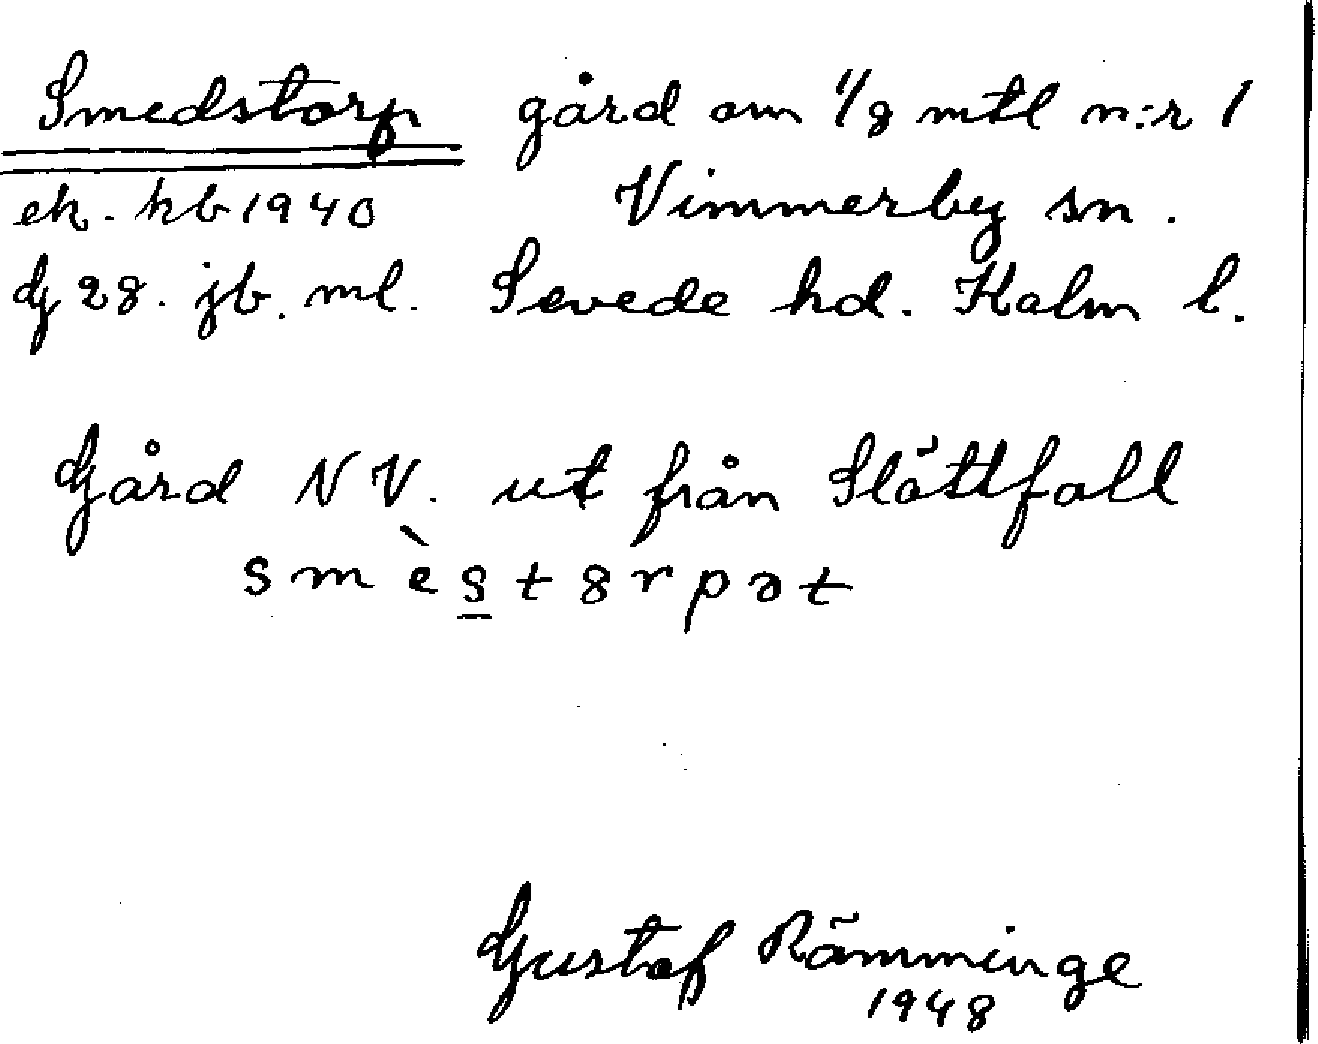 Smedstorp gård om 1/8 mtl n:r 1
ek. kb 1940 Vimmerby sn.
G 28. jb. ml. Sevede hd. Kalm l.
Gård NV. ut från Slättfall
smèst8rpət
Gustaf Rämminge
1948